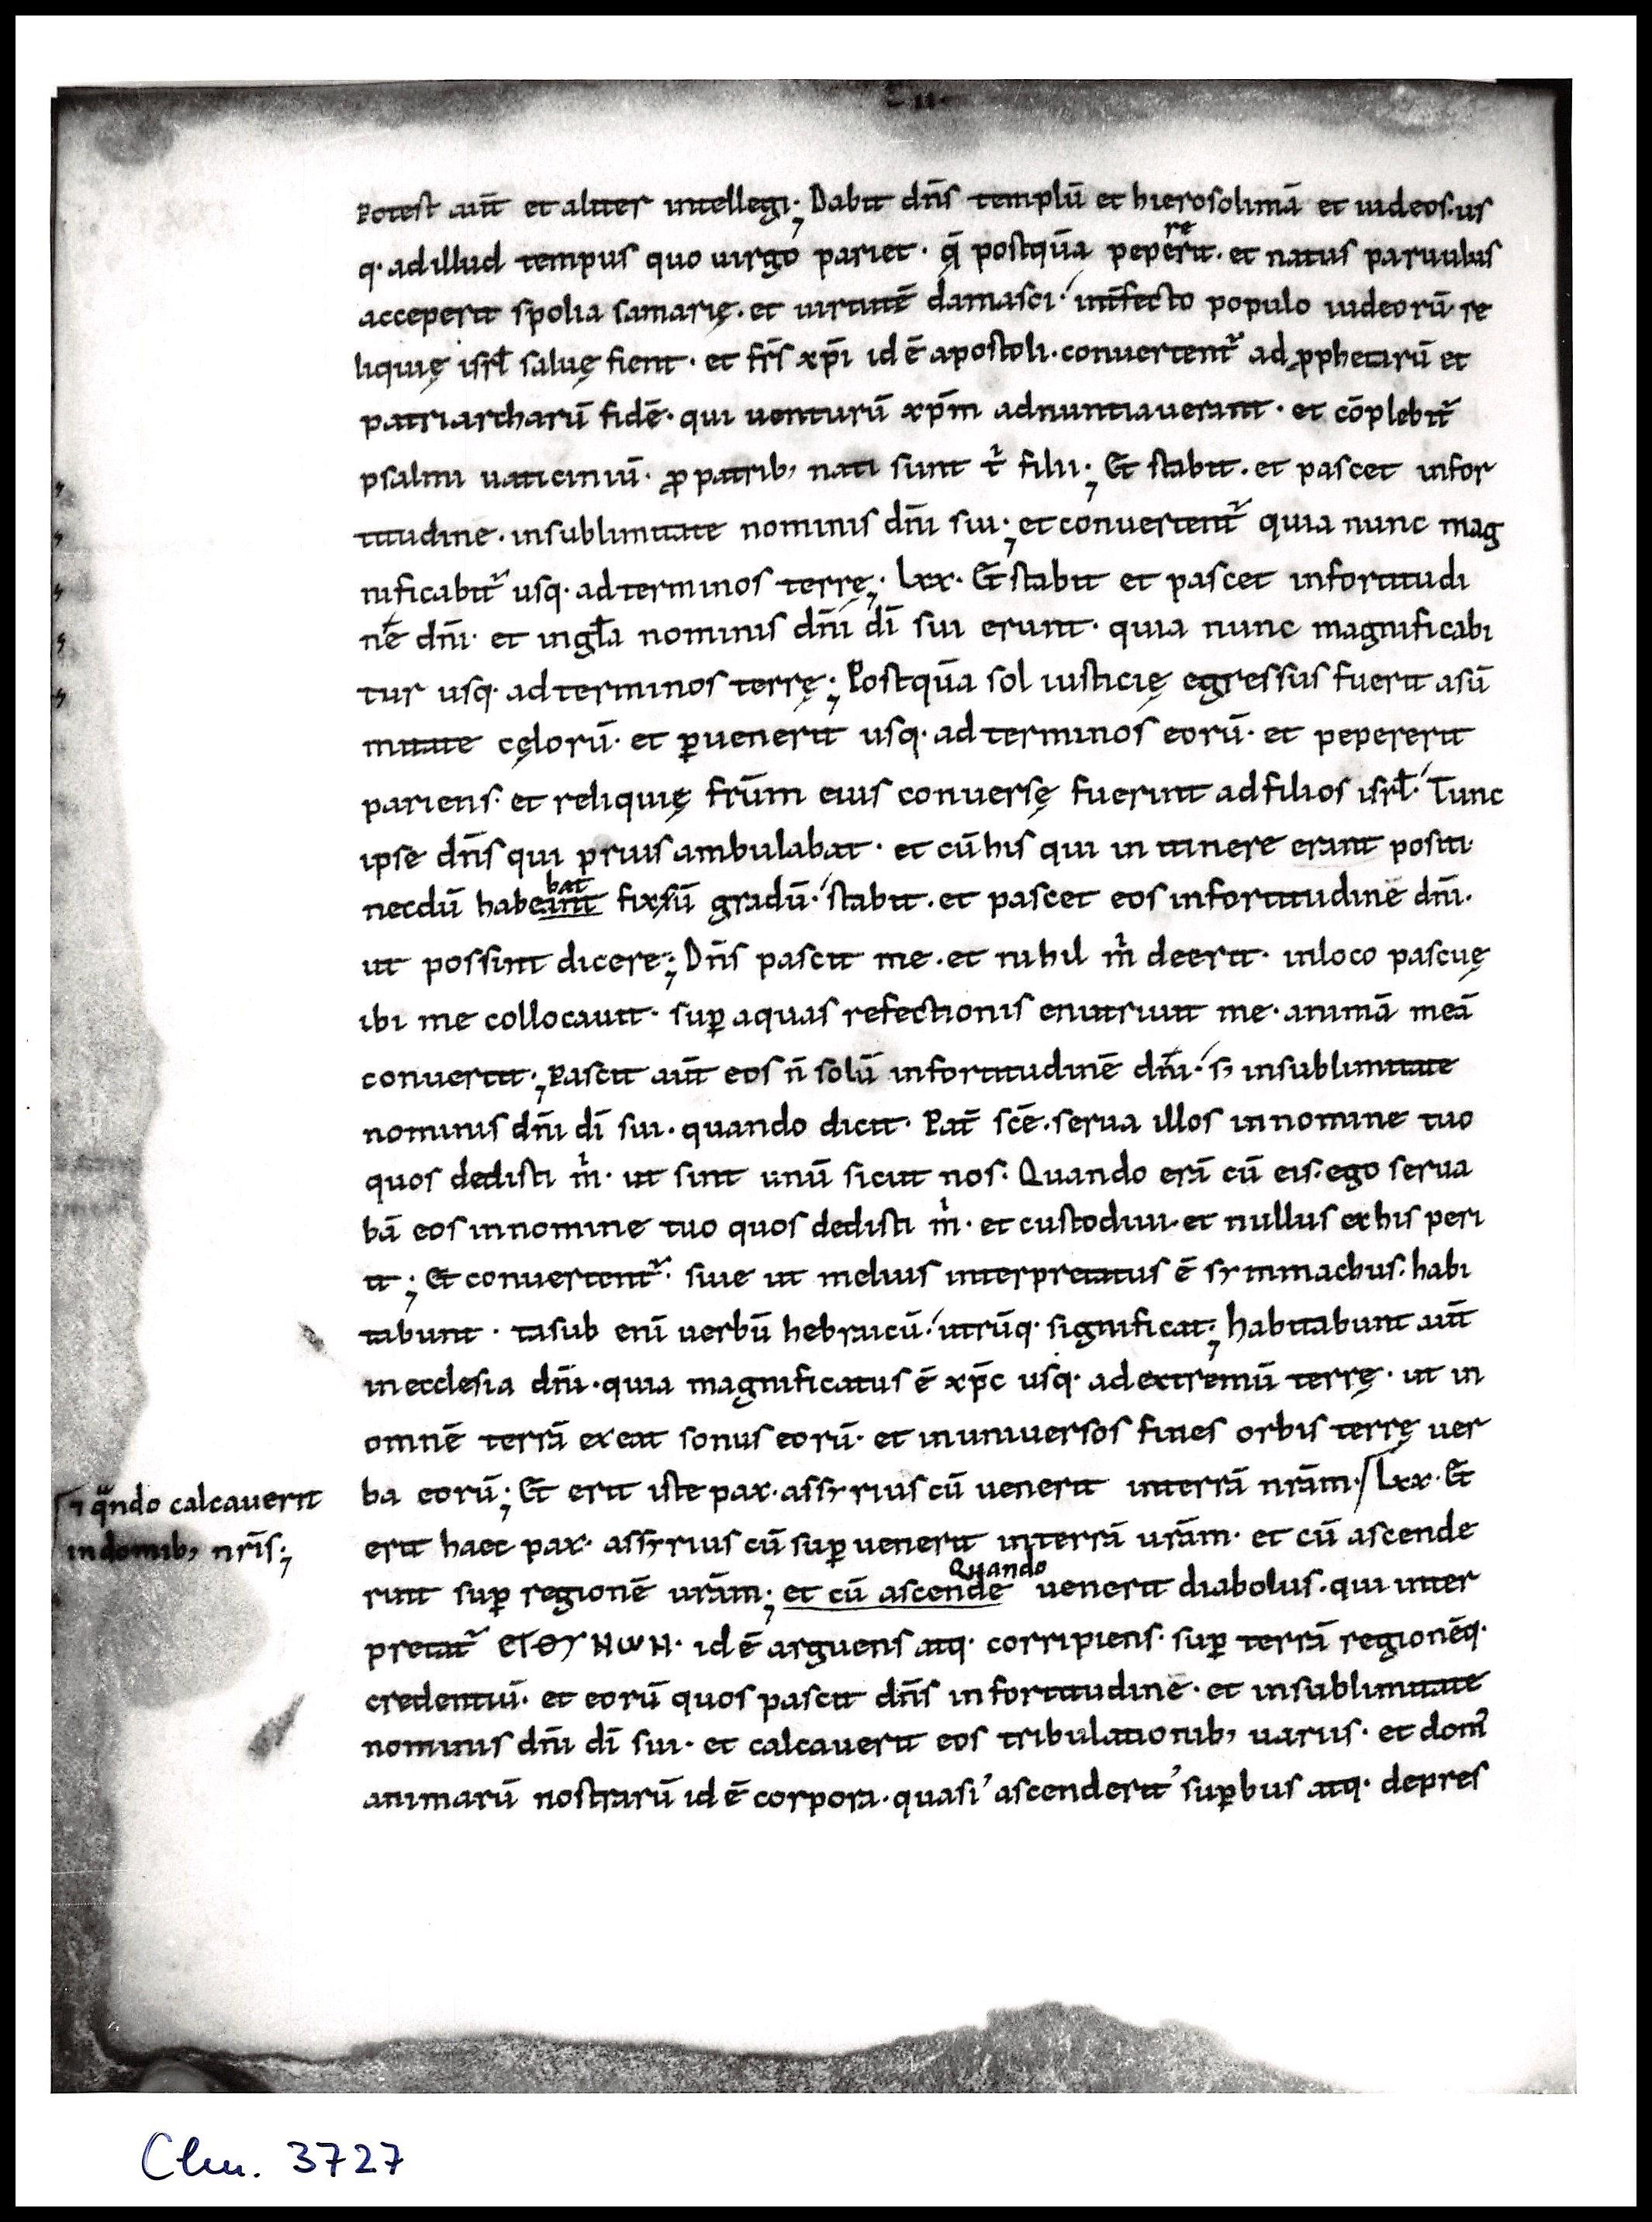 Potest aūt et aliter intellegi; Dabit dn̄s templū et hierosolimā et iudeos. us
q· ad illud tempus quo uirgo pariet· q̄ postquā pepererit. et natus paruulus
acceperit spolia samarię. et uirtutē damasci· int̄fecto populo iudeorū· re
liquię isrł saluę fient· et frs̄ xp̄i id ē apostoli· conuertent᷑ ad ꝓphetarū et
patriarcharū fidē· qui uenturū xp̄m adnuntiauerant· et cōplebit᷑
psalmi uaticiniū· ꝓ patrib; nati sunt t' filii; Et stabit. et pascet in for
titudine. in sublimitate nominis dn̄i sui; et conuertent᷑ quia nunc mag
nificabit᷑ usq· ad terminos terrę; Lxx· Et stabit et pascet in fortitudi
nē dn̄i· et in gła nominis dn̄i dī sui erunt· quia nunc magnificabi
tur usq· ad terminos terrę; Postquā sol iusticię egressus fuerit a sū
mitate cęlorū· et ꝑuenerit usq· ad terminos eorū· et pepererit
pariens· et reliquię frūm eius conuersę fuerint ad filios isrł· Tunc
ipse dn̄s qui prius ambulabat· et cū his qui in itinere erant positi·
necdū habebat
eint fixsū gradū· stabit. et pascet eos in fortitudinē dn̄i.
ut possint dicere; Dn̄s pascit me. et nihil m' deerit· in loco pascuę
ibi me collocauit· suꝑ aquas refectionis enutriuit me· animā meā
conuertit; Pascit aūt eos n̄ solū in fortitudinē dn̄i· s; in sublimitate
nominis dn̄i dī sui· quando dicit· Pat̄ scē. serua illos in nomine tuo
quos dedisti m'· ut sint unū sicut nos· Quando erā cū eis· ego serua
bā eos in nomine tuo quos dedisti m'· et custodiui· et nullus ex his peri
it; Et conuertent᷑· siue ut melius interpretatus ē symmachus· habi
tabunt· iasub enī uerbū hebraicū· utrūq· significat; habitabunt aūt
in ecclesia dn̄i· quia magnificatus ē xp̄c usq· ad extremū terrę· ut in
omnē terrā exeat sonus eorū· et in uniuersos fines orbis terrę uer
ba eorū; Et erit iste pax· assyrius cū uenerit in terrā nrām· Lxx· Et
⁊ qᷓndo calcauerit
in domib; nrīs;
erit haec pax· assyrius cū suꝑuenerit in terrā urām· et cū ascende
rint suꝑ regionē urām; et cū ascende Quando uenerit diabolus· qui inter
pretat᷑ ЄΥΘΥΝωΝ· id ē arguens atq· corripiens· suꝑ terrā regionēq·
credentiū· et eorū quos pascit dn̄s in fortitudinē· et in sublimitate
nominis dn̄i dī sui· et calcauerit eos tribulationib; uariis· et dom̄
animarū nostrarū id ē corpora· quasi ascenderit suꝑbus atq· depres
Clm. 3727